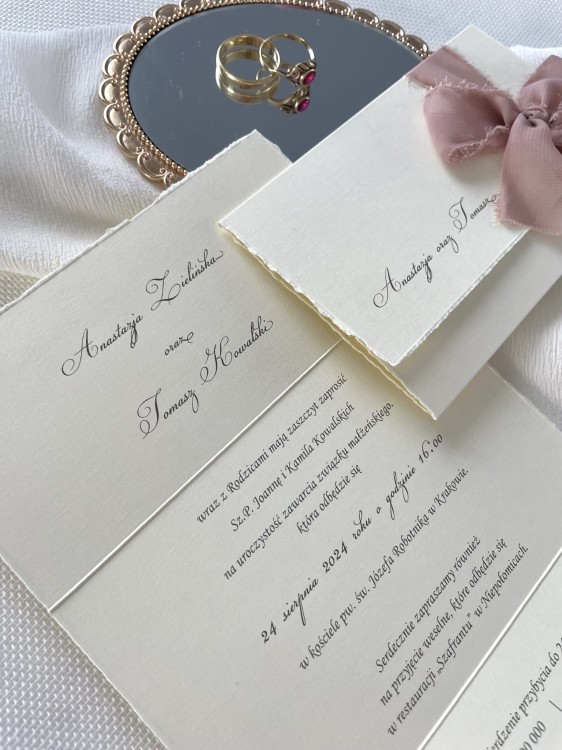 Anastazja oraz Tomasz
Anastazja Zielińska
oraz
Tomasz Kowalski
wraz z Rodzicami mają zaszczyt zaprosić
Sz.P. Joannę i Kamila Kowalskich
na uroczystość zawarcia związku małżeńskiego.
która odbędzie się
24 sierpnia 2024 roku o godzinie 16:00
w kościele pw. św. Józefa Robotnika w Krakowie.
Serdecznie zapraszamy również
na przyjęcie weselne, które odbędzie się
w restauracji „Szafrantu” w Niepołomicach.
przybycia do